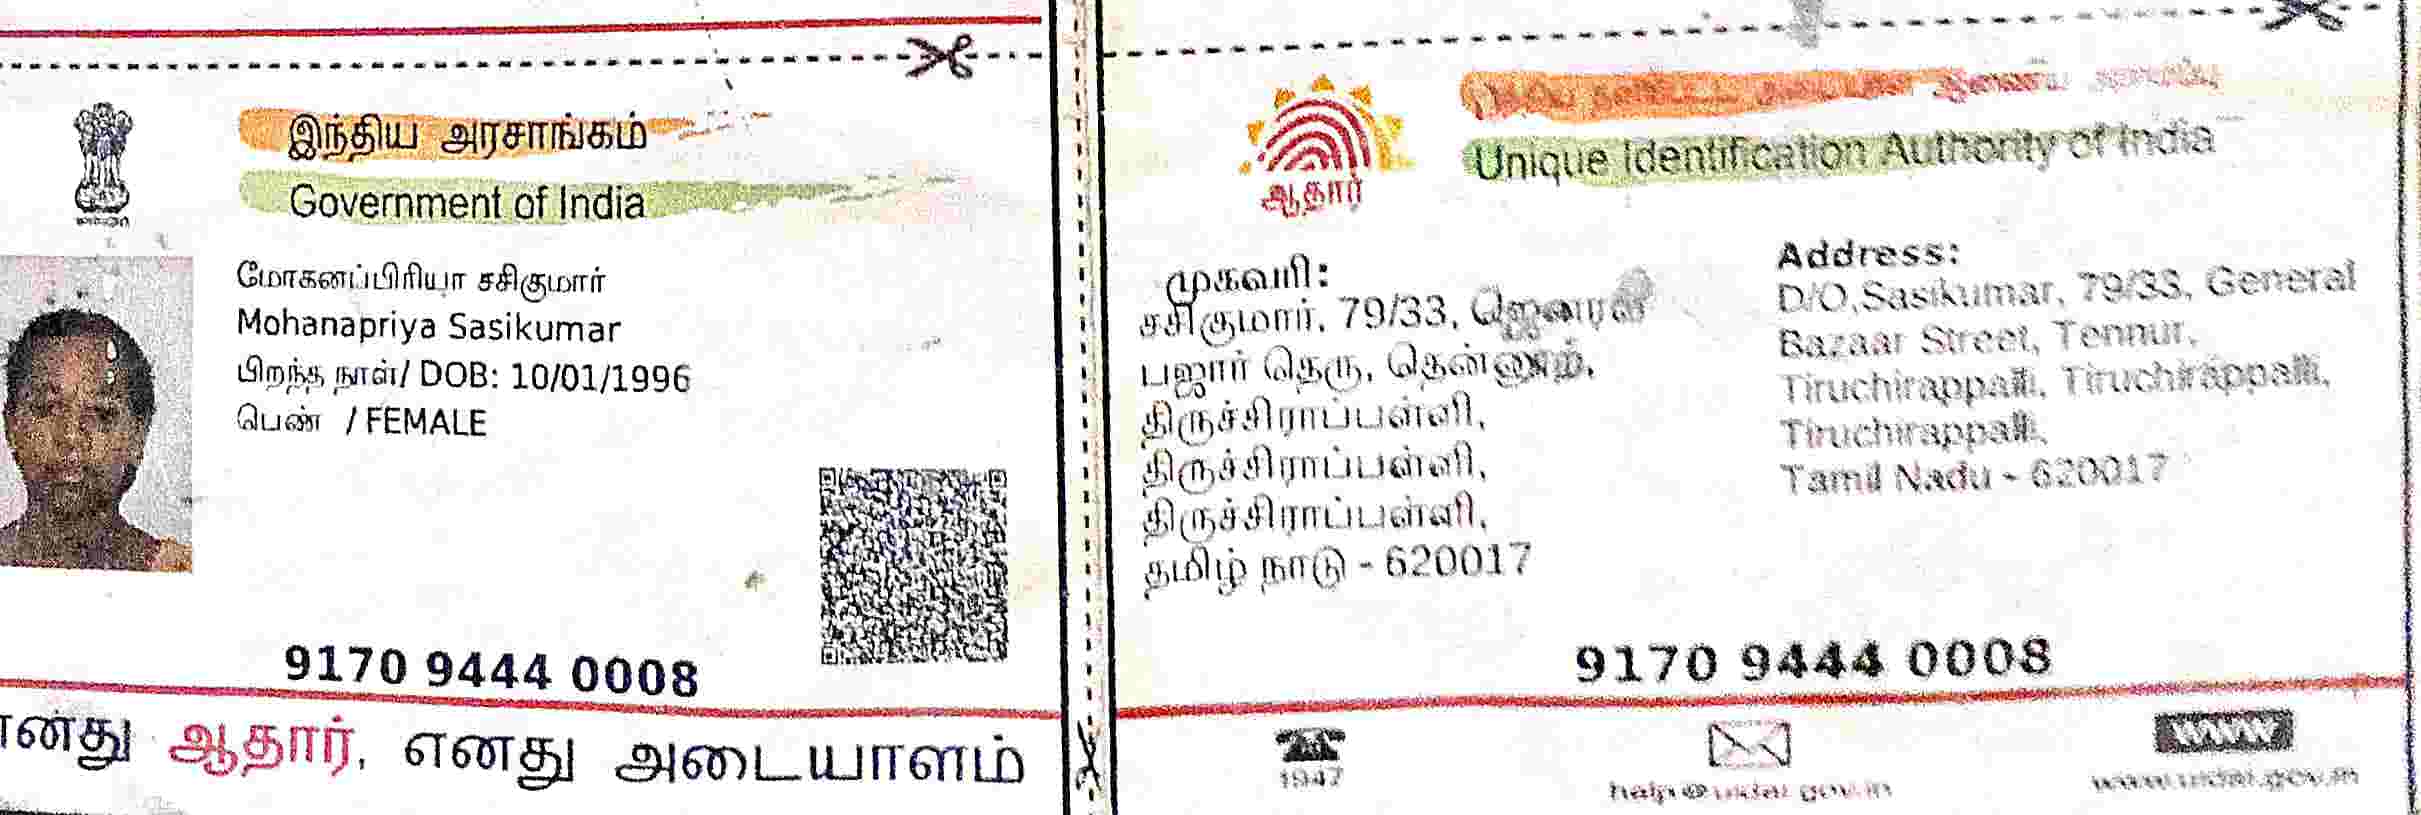 இந்திய அரசாங்கம்
Government of India
மோகனப்பிரியா சசிகுமார்
Mohanapriya Sasikumar
பிறந்த நாள்/ DOB: 10/01/1996
பெண் / FEMALE
9170 9444 0008
ஆதார், எனது அடையாளம்
ஆதார்
Unique Identification Authority of India
முகவரி:
சசிகுமார், 79/33, ஜெனரல்
பஜார் தெரு, தென்னூர்,
திருச்சிராப்பள்ளி,
திருச்சிராப்பள்ளி,
திருச்சிராப்பள்ளி,
தமிழ் நாடு - 620017
Address:
D/O,Sasikumar, 79/33, General
Bazaar Street, Tennur,
Tiruchirappalli, Tiruchirappalli,
Tiruchirappalli,
Tamil Nadu - 620017
9170 9444 0008
1947
help@uidai.gov.in
WWW
www.uidai.gov.in